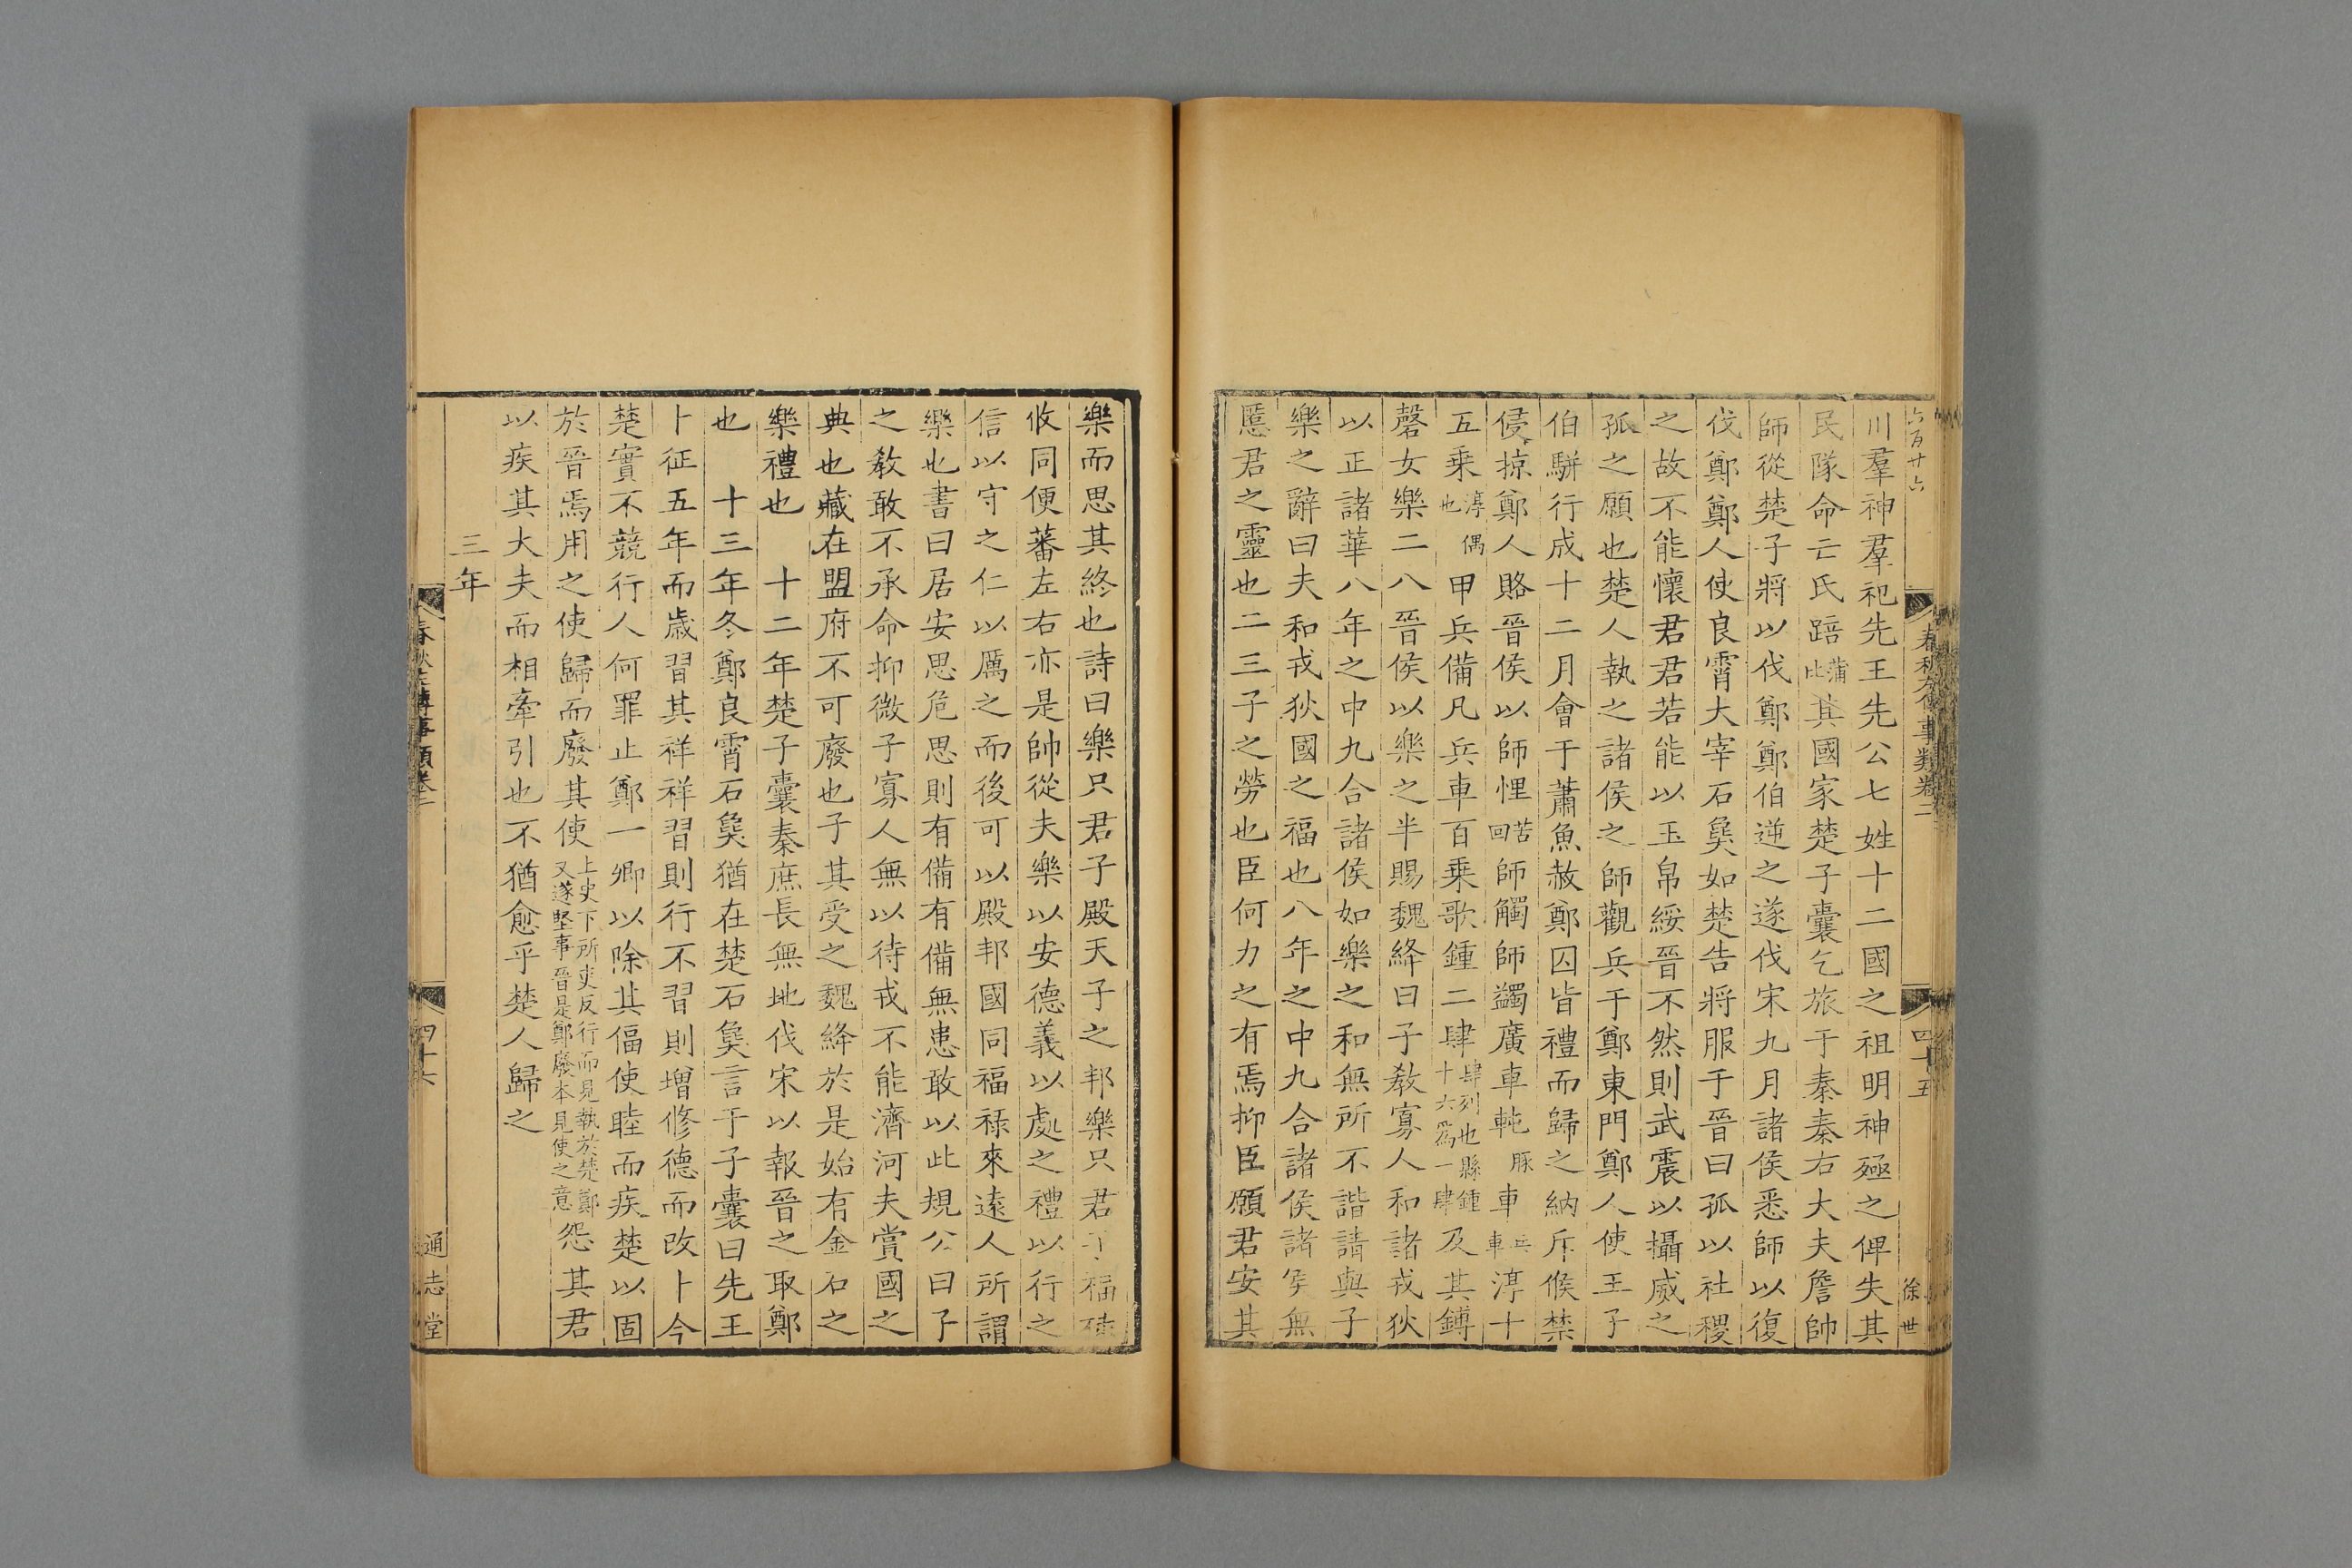 六百廿六
春秋左傳事類卷二
四十五
徐世
川羣神羣祀先王先公七姓十二國之祖明神殛之俾失其
民隊命亡氏踣蒲比其國家楚子囊乞旅于秦秦右大夫詹帥
師從楚子將以伐鄭鄭伯逆之遂伐宋九月諸侯悉師以復
伐鄭鄭人使良霄大宰石㚟如楚告將服于晉曰孤以社稷
之故不能懷君君若能以玉帛綏晉不然則武震以攝威之
孤之願也楚人執之諸侯之師觀兵于鄭東門鄭人使王子
伯駢行成十二月會于蕭魚赦鄭囚皆禮而歸之納斥候禁
侵掠鄭人賂晉侯以師悝苦回師觸師蠲廣車軘豚車兵車淳十
五乗淳偶也甲兵備凡兵車百乗歌鍾二肆肆列也縣鍾十六爲一肆及其鎛
磬女樂二八晉侯以樂之半賜魏絳曰子敎寡人和諸戎狄
以正諸華八年之中九合諸侯如樂之和無所不諧請與子
樂之辭曰夫和戎狄國之福也八年之中九合諸侯諸侯無
慝君之靈也二三子之勞也臣何力之有焉抑臣願君安其
樂而思其終也詩曰樂只君子殿天子之邦樂只君子福
攸同便蕃左右亦是帥從夫樂以安德義以處之禮以行之
信以守之仁以厲之而後可以殿邦國同福祿來遠人所謂
樂也書曰居安思危思則有備有備無患敢以此規公曰子
之敎敢不承命抑微子寡人無以待戎不能濟河夫賞國之
典也藏在盟府不可廢也子其受之魏絳於是始有金石之
樂禮也　十二年楚子囊秦庶長無地伐宋以報晉之取鄭
也　十三年冬鄭良霄石㚟猶在楚石㚟言于子囊曰先王
卜征五年而歲習其祥祥習則行不習則增修德而改卜今
楚實不競行人何罪止鄭一卿以除其偪使睦而疾楚以固
於晉焉用之使歸而廢其使上史下所吏反行而見執於楚鄭又遂堅事晉是鄭廢本見使之意怨其君
以疾其大夫而相牽引也不猶愈乎楚人歸之
三年
春秋左傳事類卷二
四十六
通志堂